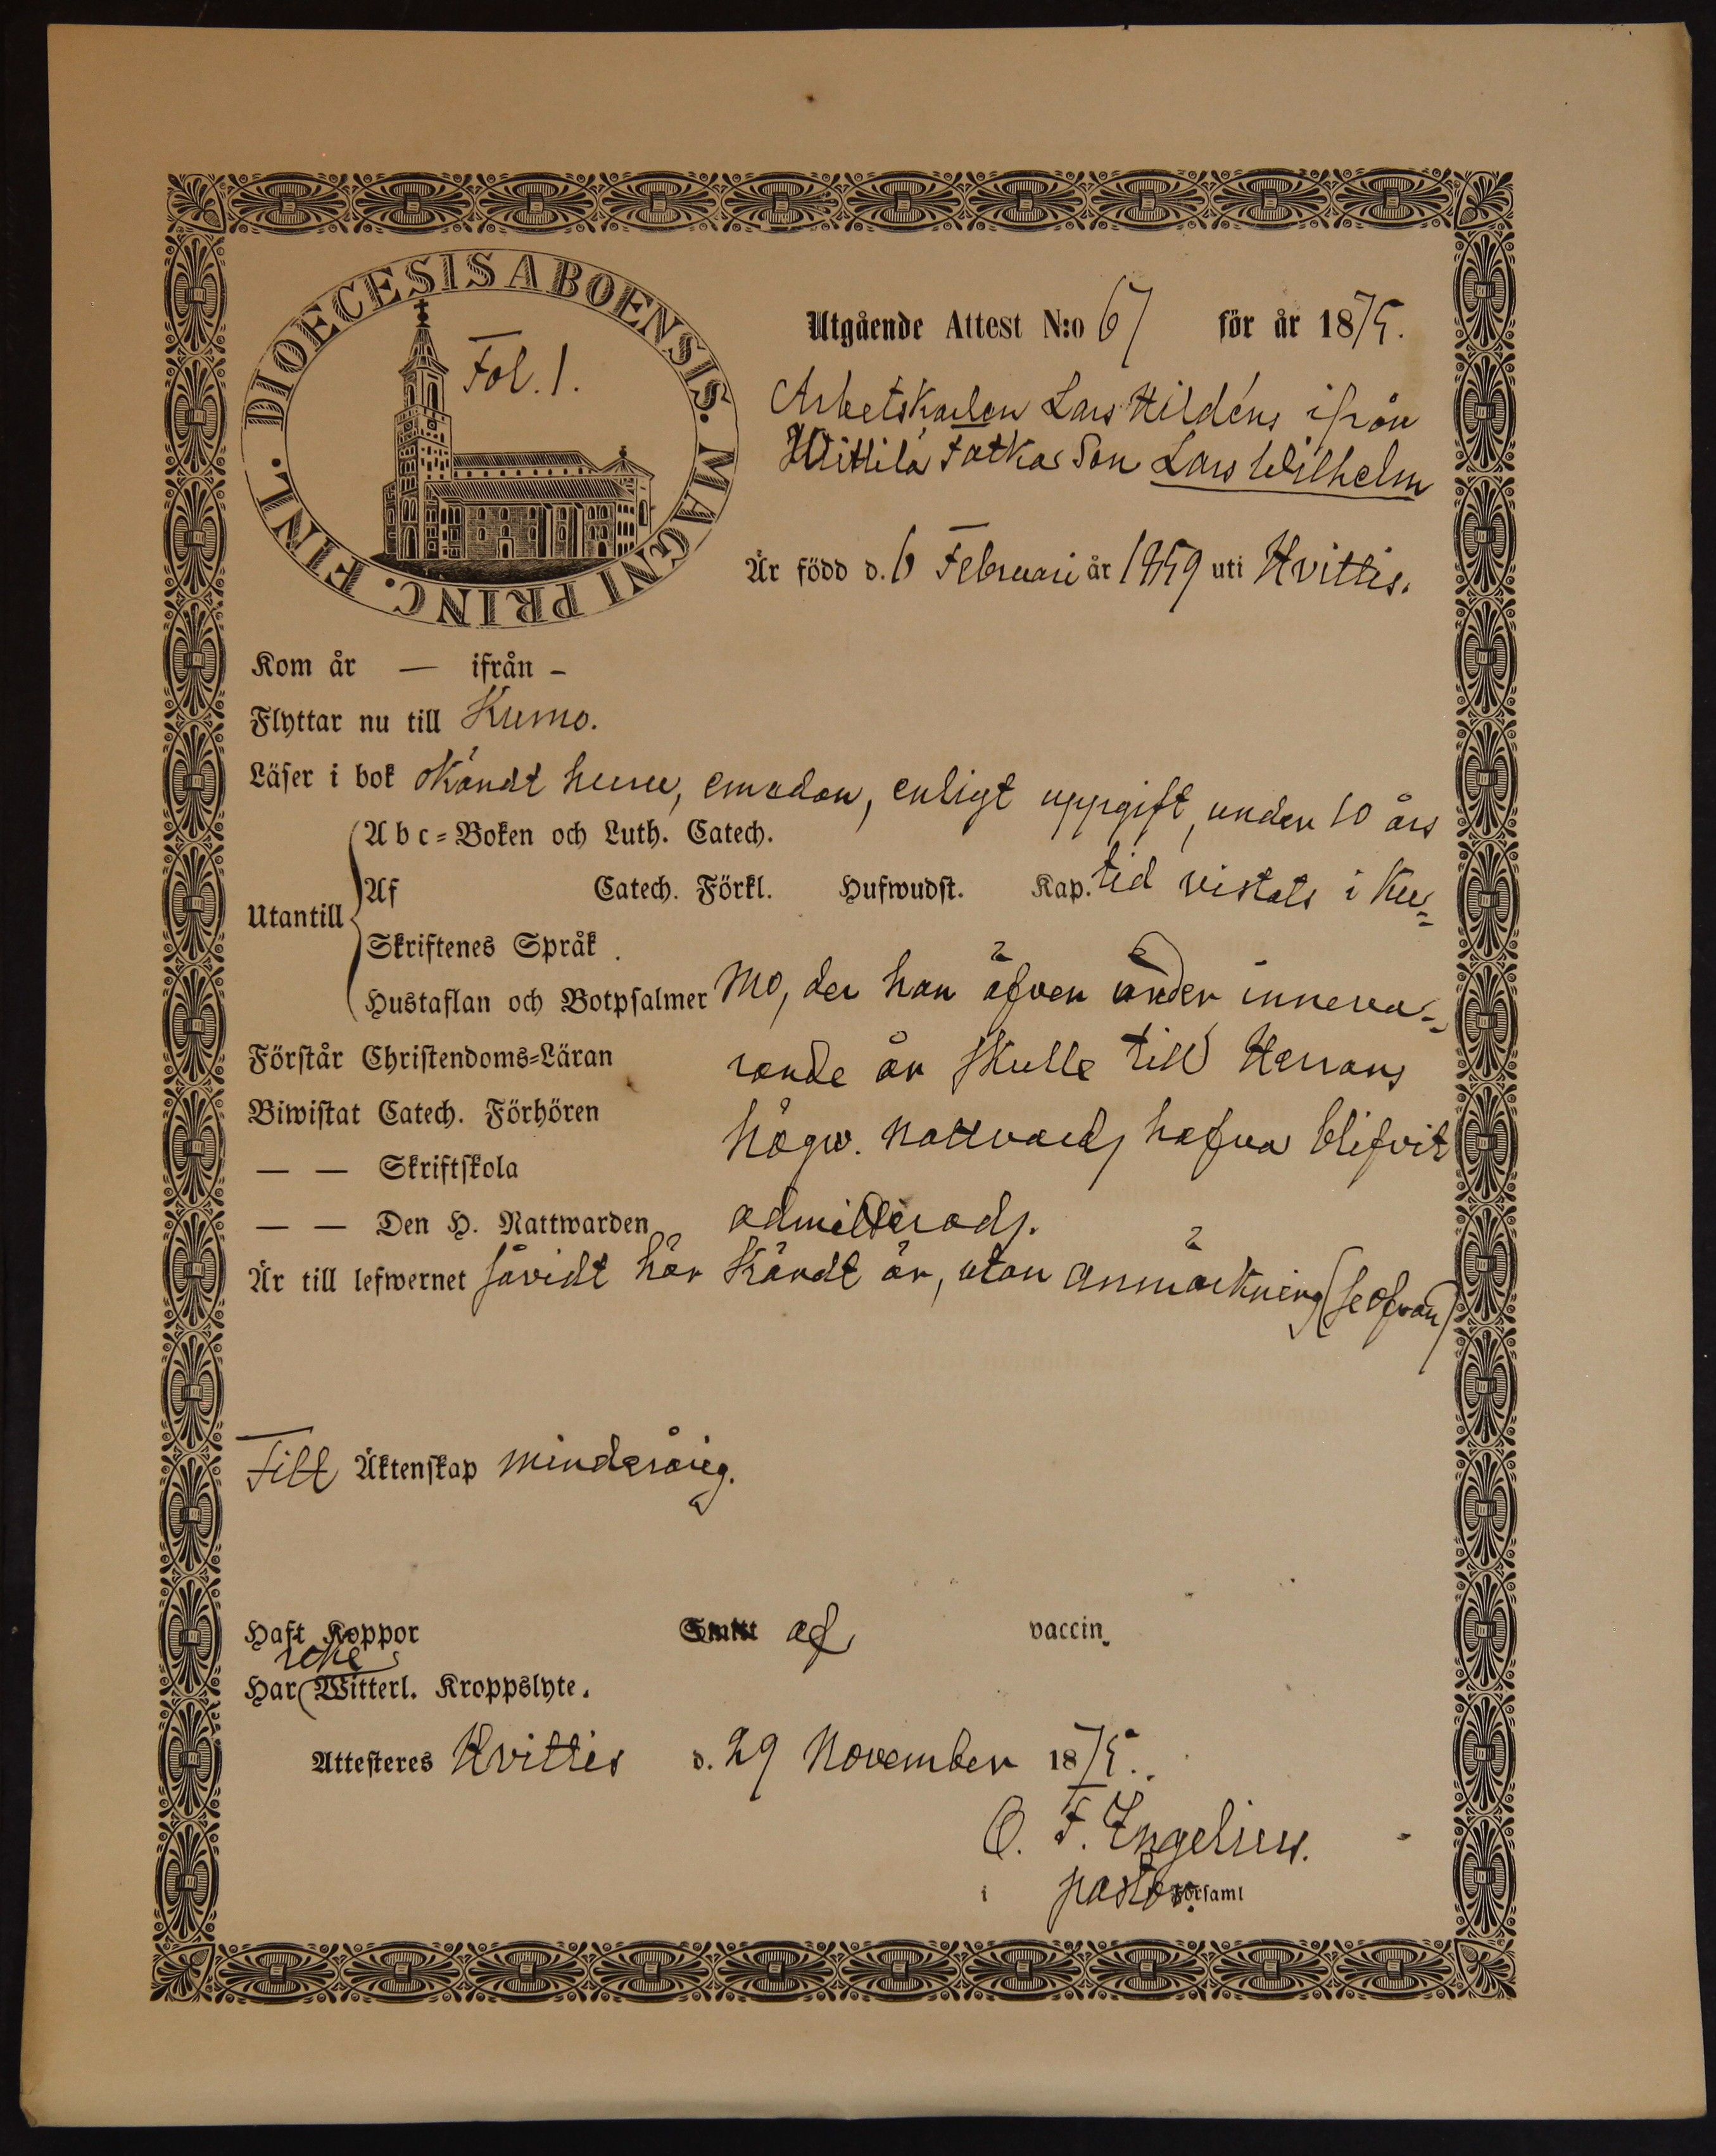 DIOECESIS ABOENSIS. MAGNI PRINC. FINL.
Fol. 1.
Utgående Attest N:o 67 för år 1875.
Arbetskarlen Lars Hildéns ifrån
Wittilä Jatka Son Lars Wilhelm
Är född d. 6 Februari år 1859 uti Hvittis.
Kom år — ifrån –
Flyttar nu till Kumo.
Läser i bok okändt huru, emedan, enligt uppgift, under 10 års
Abc-Boken och Luth. Catech.
Utantill
Af Catech. Förkl. Hufwudst. Kap. tid vistats i Ku=
Skriftenes Språk
Hustaflan och Botpsalmer mo, der han äfven under inneva=
Förstår Christendoms-Läran rande år skulle till Herrans
Biwistat Catech. Förhören
— — Skriftskola högv. nattvard hafva blifvit
— — Den H. Nattwarden admitterads.
Är till lefwernet såvidt här kändt är, utan anmärkning (se ofvan)
Till Äktenskap minderårig.
Haft Koppor af vaccin.
icke
Har Witterl. Kroppslyte.
Attesteres Hvittis d. 29 November 1875.
F. Engelius.
i pastor. Församl